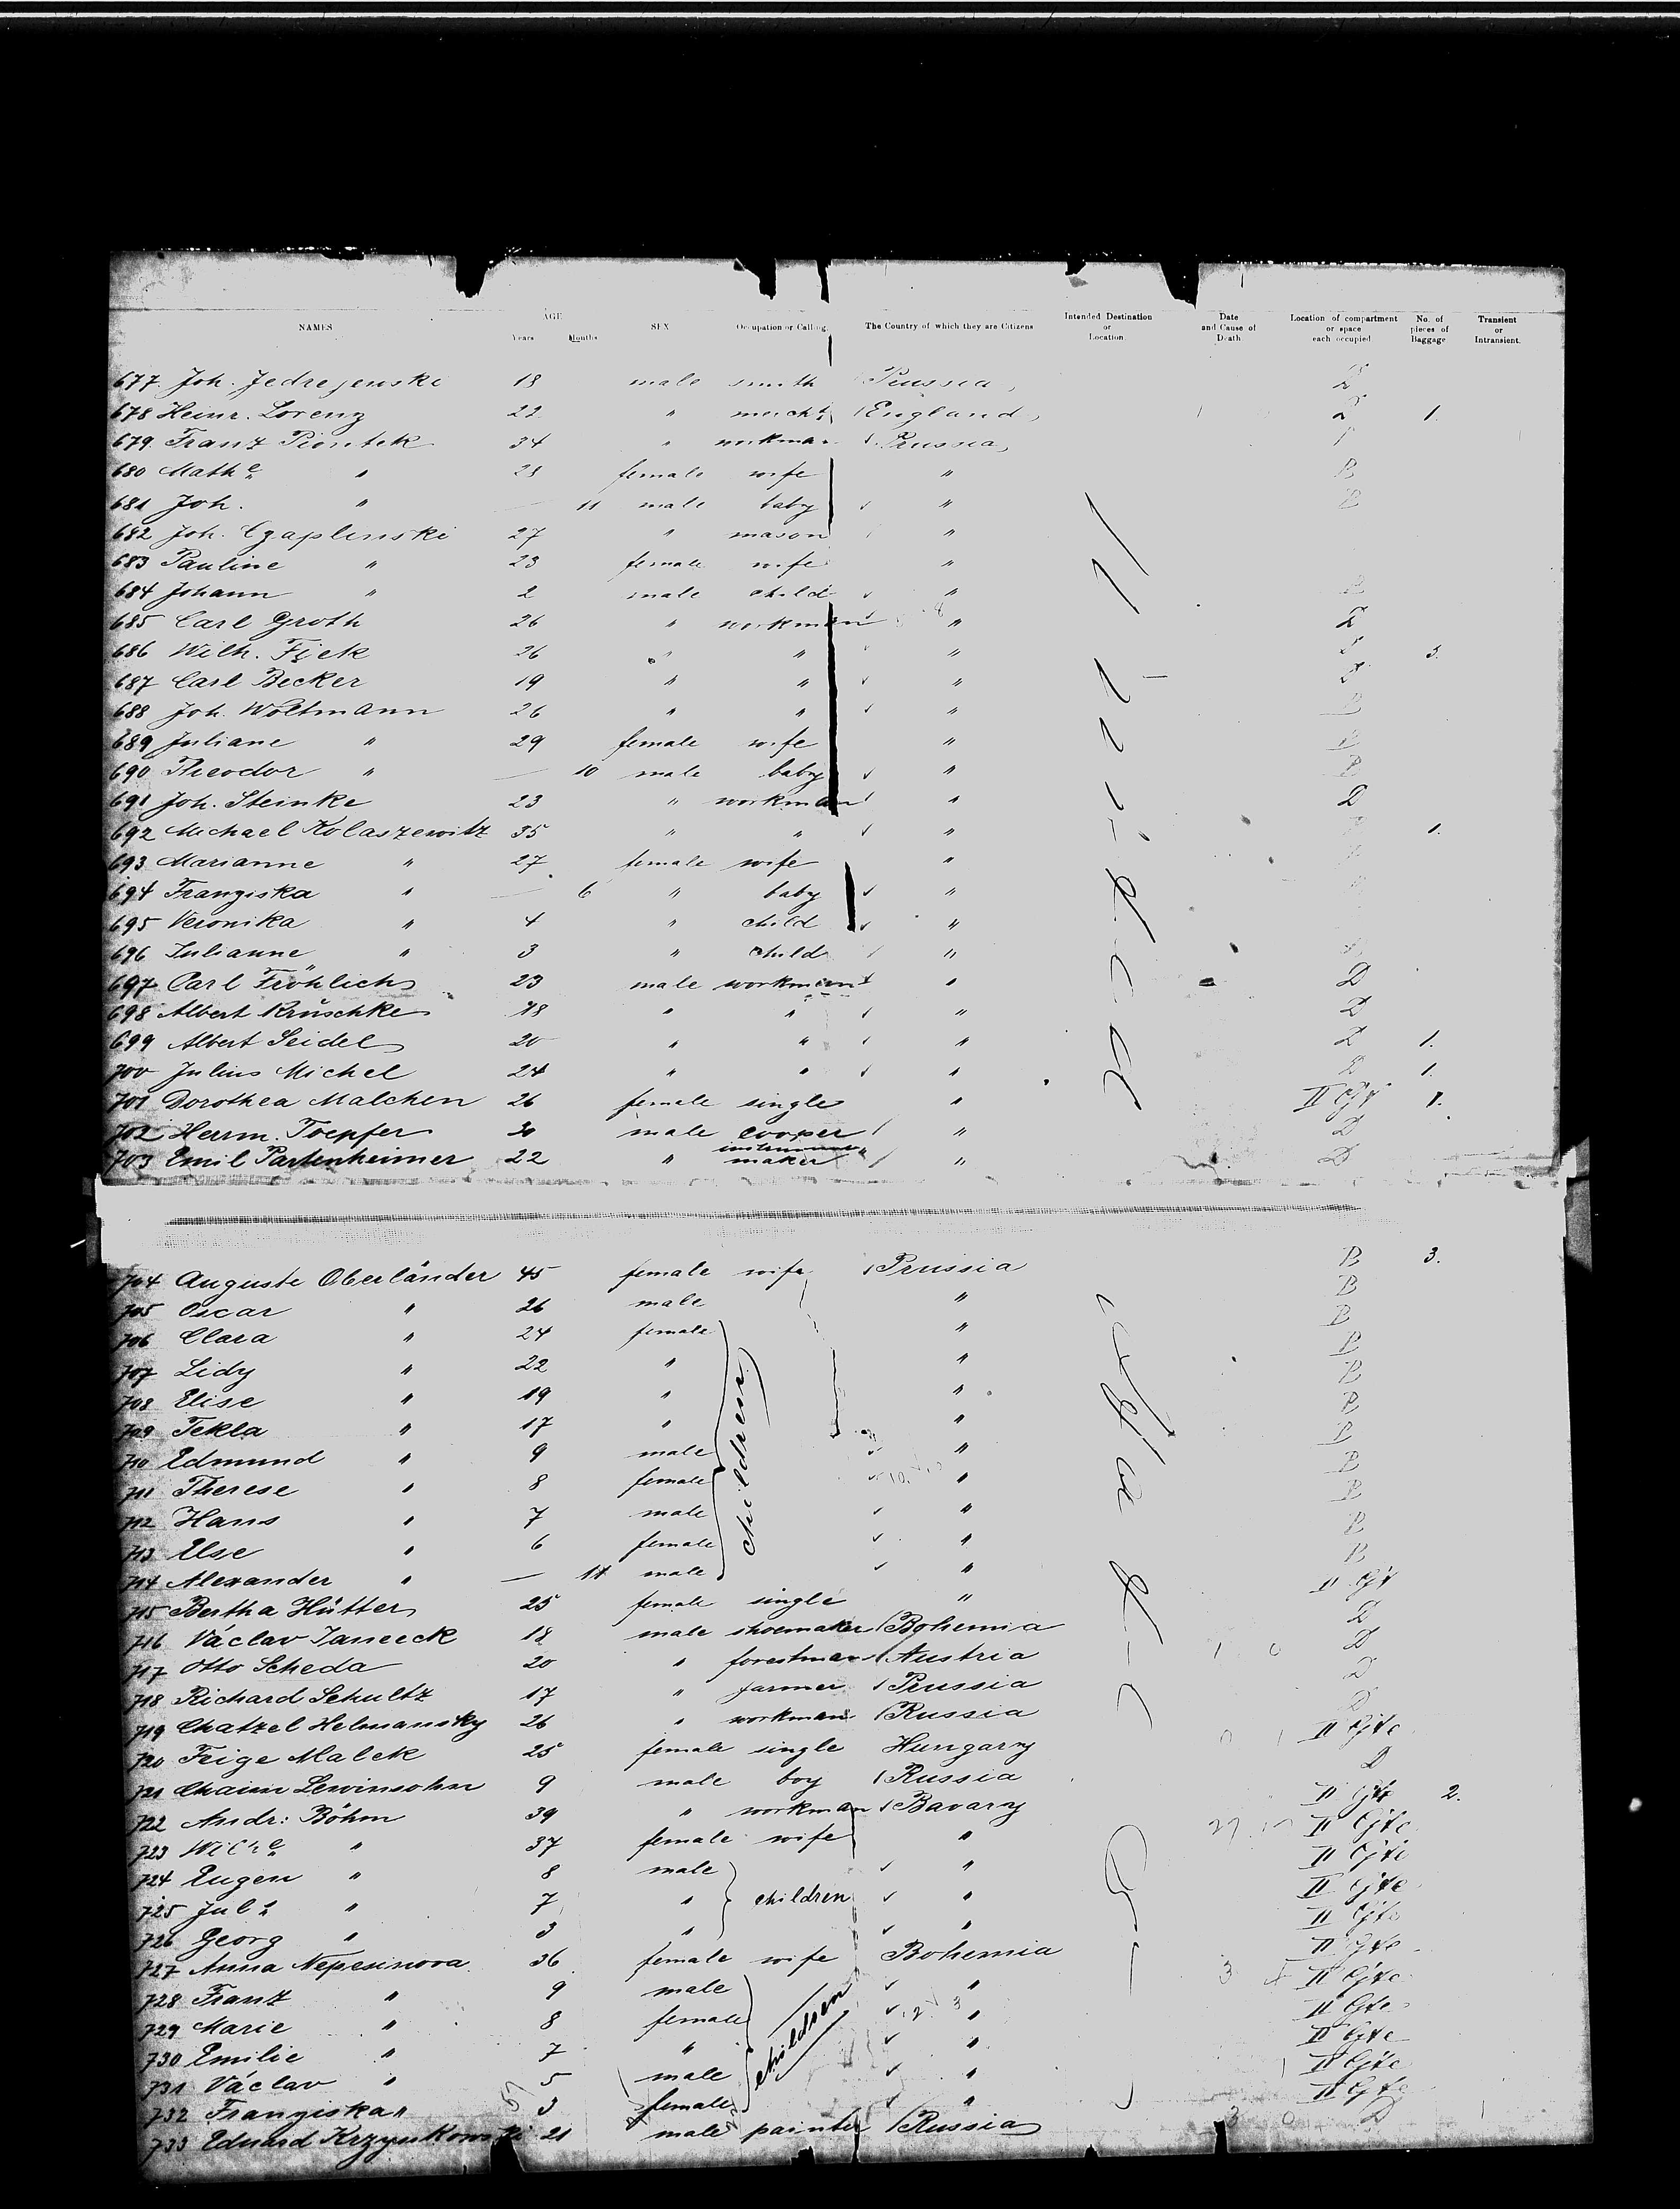 NAMES AGE Years Months SEX Occupation or Calling The Country of which they are Citizens Intended Destination or Location. Date and Cause of Death. Location of compartment or space each occupied. No. of pieces of Baggage Transient or Intransient.
677 Joh. Jedrejewski 18 male smith Prussia
678 Heinr. Lorenz 22 " mercht England 1.
679 Franz Piontek 34 " workman Prussia
680 Mathe " 28 female wife " B
681 Joh. " — 11 male baby " B
682 Joh. Czaplinski 27 " mason "
683 Pauline " 23 female wife "
684 Johann " 2 male child " B
685 Carl Groth 26 " workman " D
686 Wilh. Fick 26 " " " 3.
687 Carl Becker 19 " " " D
688 Joh. Woltmann 26 " " " B
689 Juliane " 29 female wife " B
690 Theodor " — 10 male baby " B
691 Joh. Steinke 23 " workman " D
692 Michael Kolaszewitz 35 " " " 1.
693 Marianne " 27 female wife "
694 Franziska " — 6 " baby "
695 Veronika " 4 " child "
696 Julianne " 3 " child "
697 Carl Fröhlich 23 male workman " D
698 Albert Kruschke 18 " " " D
699 Albert Seidel 20 " " " D 1.
700 Julius Michel 24 " " " D 1.
701 Dorothea Malchen 26 female single " 1.
702 Herrm. Toepfer 30 male cooper " D
703 Emil Partenheimer 22 " maker " D
704 Auguste Oberländer 45 female wife Prussia B 3.
705 Oscar " 26 male " B
706 Clara " 24 female " B
707 Lidy " 22 " " B
708 Elise " 19 " " B
709 Tekla " 17 " children " B
710 Edmund " 9 male " B
711 Therese " 8 female " B
712 Hans " 7 male " B
713 Else " 6 female " B
714 Alexander " — 11 male " B
715 Bertha Hütter 25 female single "
716 Václav Janecek 18 male shoemaker Bohemia D
717 Otto Scheda 20 " forestman Austria D
718 Richard Schultz 17 " farmer Prussia D
719 Chatzel Helmansky 26 " workman Russia D
720 Feige Malek 25 female single Hungary II Gte
721 Chaim Lewinsohn 9 male boy Russia D
722 Andr: Böhm 39 " workman Bavary II Gte 2.
723 Wilhe " 37 female wife " II Gte
724 Eugen " 8 male " II Gte
725 Juls " 7 " children " II Gte
726 Georg " 3 " " II Gte
727 Anna Nepesinova 36 female wife Bohemia II Gte
728 Franz " 9 male " II Gte
729 Marie " 8 female " II Gte
730 Emilie " 7 " children " II Gte
731 Václav " 5 male " II Gte
732 Franziska " 3 female " II Gte
733 Eduard Krzynkowski 21 male painter Russia D